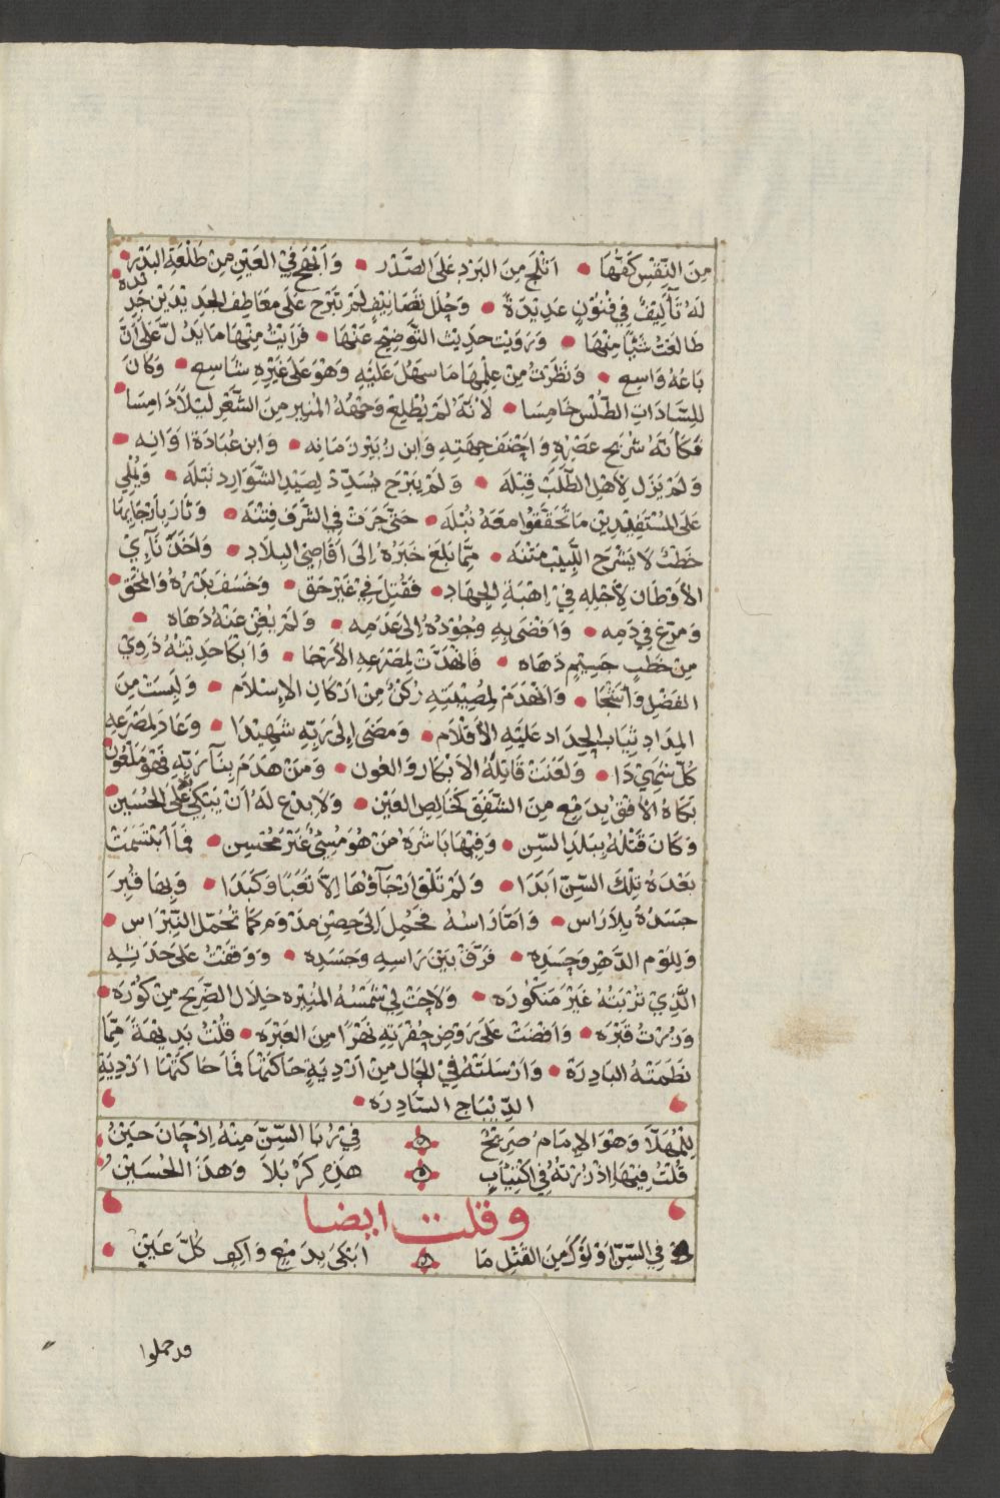 مِنَ النَّفْسِ كَفُّهَا • اَثْلَجُ مِنَ البَرَدِ عَلَى الصَّدْرِ • وَاَبْهَجُ فِي العَيْنِ مِنْ طَلْعَةِ البَدْرِ •
لَهُ تَآلِيفٌ فِي فُنُونٍ عَدِيْدَةٌ • وَجُلَلُ تَصَانِيْفٍ لَمْ تَبْرَحْ عَلَى مَعَاطِفِ الجَدِيْدَيْنِ جَدِيْدَه •
طَالَعْتُ شَيْئًا مِنْهَا • وَرَوَيْتُ حَدِيْثَ التَّوْضِيْحِ عَنْهَا • فَرَاَيْتُ مِنْهَا مَا يَدُلُّ عَلَى اَنَّ
بَاعَهُ وَاسِع • وَنَظَرْتُ مِنْ عِلْمِهَا مَا سَهُلَ عَلَيْهِ وَهْوَ عَلَى غَيْرِهِ شَاسِع • وَكَانَ
لِلسَّادَاتِ الطُّلْسِ خَامِسَا • لِاَنَّهُ لَمْ يُطْلِعْ وَجْهُهُ المُنِير مِنَ الشَّعْرِ لَيْلًا دَامِسَا •
فَكَاَنَّهُ شُرَيْحُ عَصْرِهِ وَاَحْنَفُ جِهَتِهِ وَابن زُبَيْرِ زَمَانِه • وَابن عُبَادَةَ اَوَانِه •
وَلَمْ يَزَل لِاَهْلِ الطَّلَبِ قِبْلَه • وَلَمْ يَبْرَحْ يُسَدِّدُ لِصَيْدِ الشَّوَارِدِ نَبْلَه • وَيُمْلِي
عَلَى المُسْتَفِيْدِيْنَ مَا تَحَقَّقُوا مَعَهُ نُبْلَه • حَتَّى جَرَتْ فِي الشَّرَفِ فِتْنَه • وَثَارَ بِاَرْجَايِهَا
خَطْبٌ لَا يَشْرَحُ اللَّبِيْبُ مَتْنَه • مِمَّا بَلَغَ خَبَرُهُ اِلَى اَقَاصِي البِلَادِ • وَاَخَذَ نَآءِيْ
الاَوْطَان لِاَجْلِهِ فِيْ اُهْبَةِ الجِهَاد • فَقُتِلَ فِيْ غَيْرِ حَق • وَخَسَفَ بَدْرُهُ وَامَّحَق •
وَمُرِّغَ فِي دَمِه • وَاَفْضَى بِهِ وُجُوْدُهُ اِلَى عَدَمِه • وَلَمْ يُغْنِ عَنْهُ دَهَاه •
مِنْ خَطْبٍ جَسِيْمٍ دَهَاه • فَانْهَدَّتْ لِمَصْرَعِهِ الاَرْحَا • وَاَبْكَا حَدِيْثُهُ ذَوِيْ
الفَضْلِ وَاَشْجَا • وَانْهَدَمَ لِمُصِيْبَتِهِ رُكْنٌ مِنْ اَرْكَانِ الاِسْلَام • وَلَبِسَتْ مِنَ
المِدَادِ ثِيَابَ الحِدَادِ عَلَيْهِ الاَقْلَام • وَمَضَى اِلَى رَبِّهِ شَهِيْدَا • وَعَادَ لِمَصْرَعِهِ
كُلٌّ سَهِيْدَا • وَلَعَنَتْ قَاتِلَهُ الاَبْكَارُ وَالعُون • وَمَنْ هَدَمَ بِنَآ رَبِّهِ فَهْوَ مَلْعُون •
بَكَاهُ الاُفْقُ بِدَمْعٍ مِنَ الشَّفَقِ كَخَالِصِ العَيْن • وَلَا بِدْعَ لَهُ اَنْ يَبْكِي عَلَى الحُسَيْن •
وَكَانَ قَتْلُهُ بِبَلَدِ السِّن • وَفِيْهَا بَاشَرَهُ مَنْ هُوَ مُسِيٌ غَيْرُ مُحْسِن • فَمَا ابْتَسَمَتْ
بَعْدَهُ تِلْكَ السِّنُّ اَبَدَا • وَلَمْ تَلْقَ اَرْجَآؤُهَا اِلَّا تَعَبًا وَكَبَدَا • وَبِهَا قُبِرَ
جَسَدُهُ بِلَا رَاس • وَاَمَّا رَاسُهُ فَحُمِلَ اِلَى حِصْنِ مَدْوَم كَمَا تُحْمَلُ النِّبْرَاس •
وَلِلُؤْمِ الدَّهْرِ وَحَسَدِه • فَرَّقَ بَيْنَ رَاسِهِ وَجَسَدِه • وَوَقَفْتُ عَلَى جَدَثِهِ
الَّذِيْ تُرْبَتُهُ غَيْرُ مَنْكُوْرَه • وَلَاحَتْ لِيْ شَمْسُهُ المُنِيْرَه خِلَالَ الضَّرِيْحِ مِنْ كُوَّرَه •
وَزُرْتُ قَبْرَه • وَاَفَضْتُ عَلَى رَوْضِ حُفْرَتِهِ نَهْرًا مِنَ العَبْرَه • قُلْتُ بَدِيْهَةً مِمَّا
نَظَمَتْهُ البَادِرَهْ • وَاَرْسَلَتْهُ فِيْ الحَالِ مِنْ اَرْدِيَةٍ حَاكَتْهَا فَمَا حَاكَتْهَا اَرْدِيَةِ
الدِّيْبَاج السَّادِرَه •
لِلْمُهَلَّا وَهْوَ الاِمَامُ ضَرِيْحٌ فِيْ رُبَا السِّنِّ مِنْهُ اِذْ حَانَ حَيْنُ
قُلْتُ فِيْهَا اِذْ زُرْتُهُ فِي اكْتِيَابٍ هٰذِهِ كَرْبَلَا وَهٰذَا الحُسَيْنُ
وقلت ايضا
فِي السِّنِّ اَوْ لَوْكَ مِنَ القَتْلِ مَا اَبْكَى بِدَمْعٍ وَاكِفٍ كُلَّ عَيْنٍ
قد حملوا